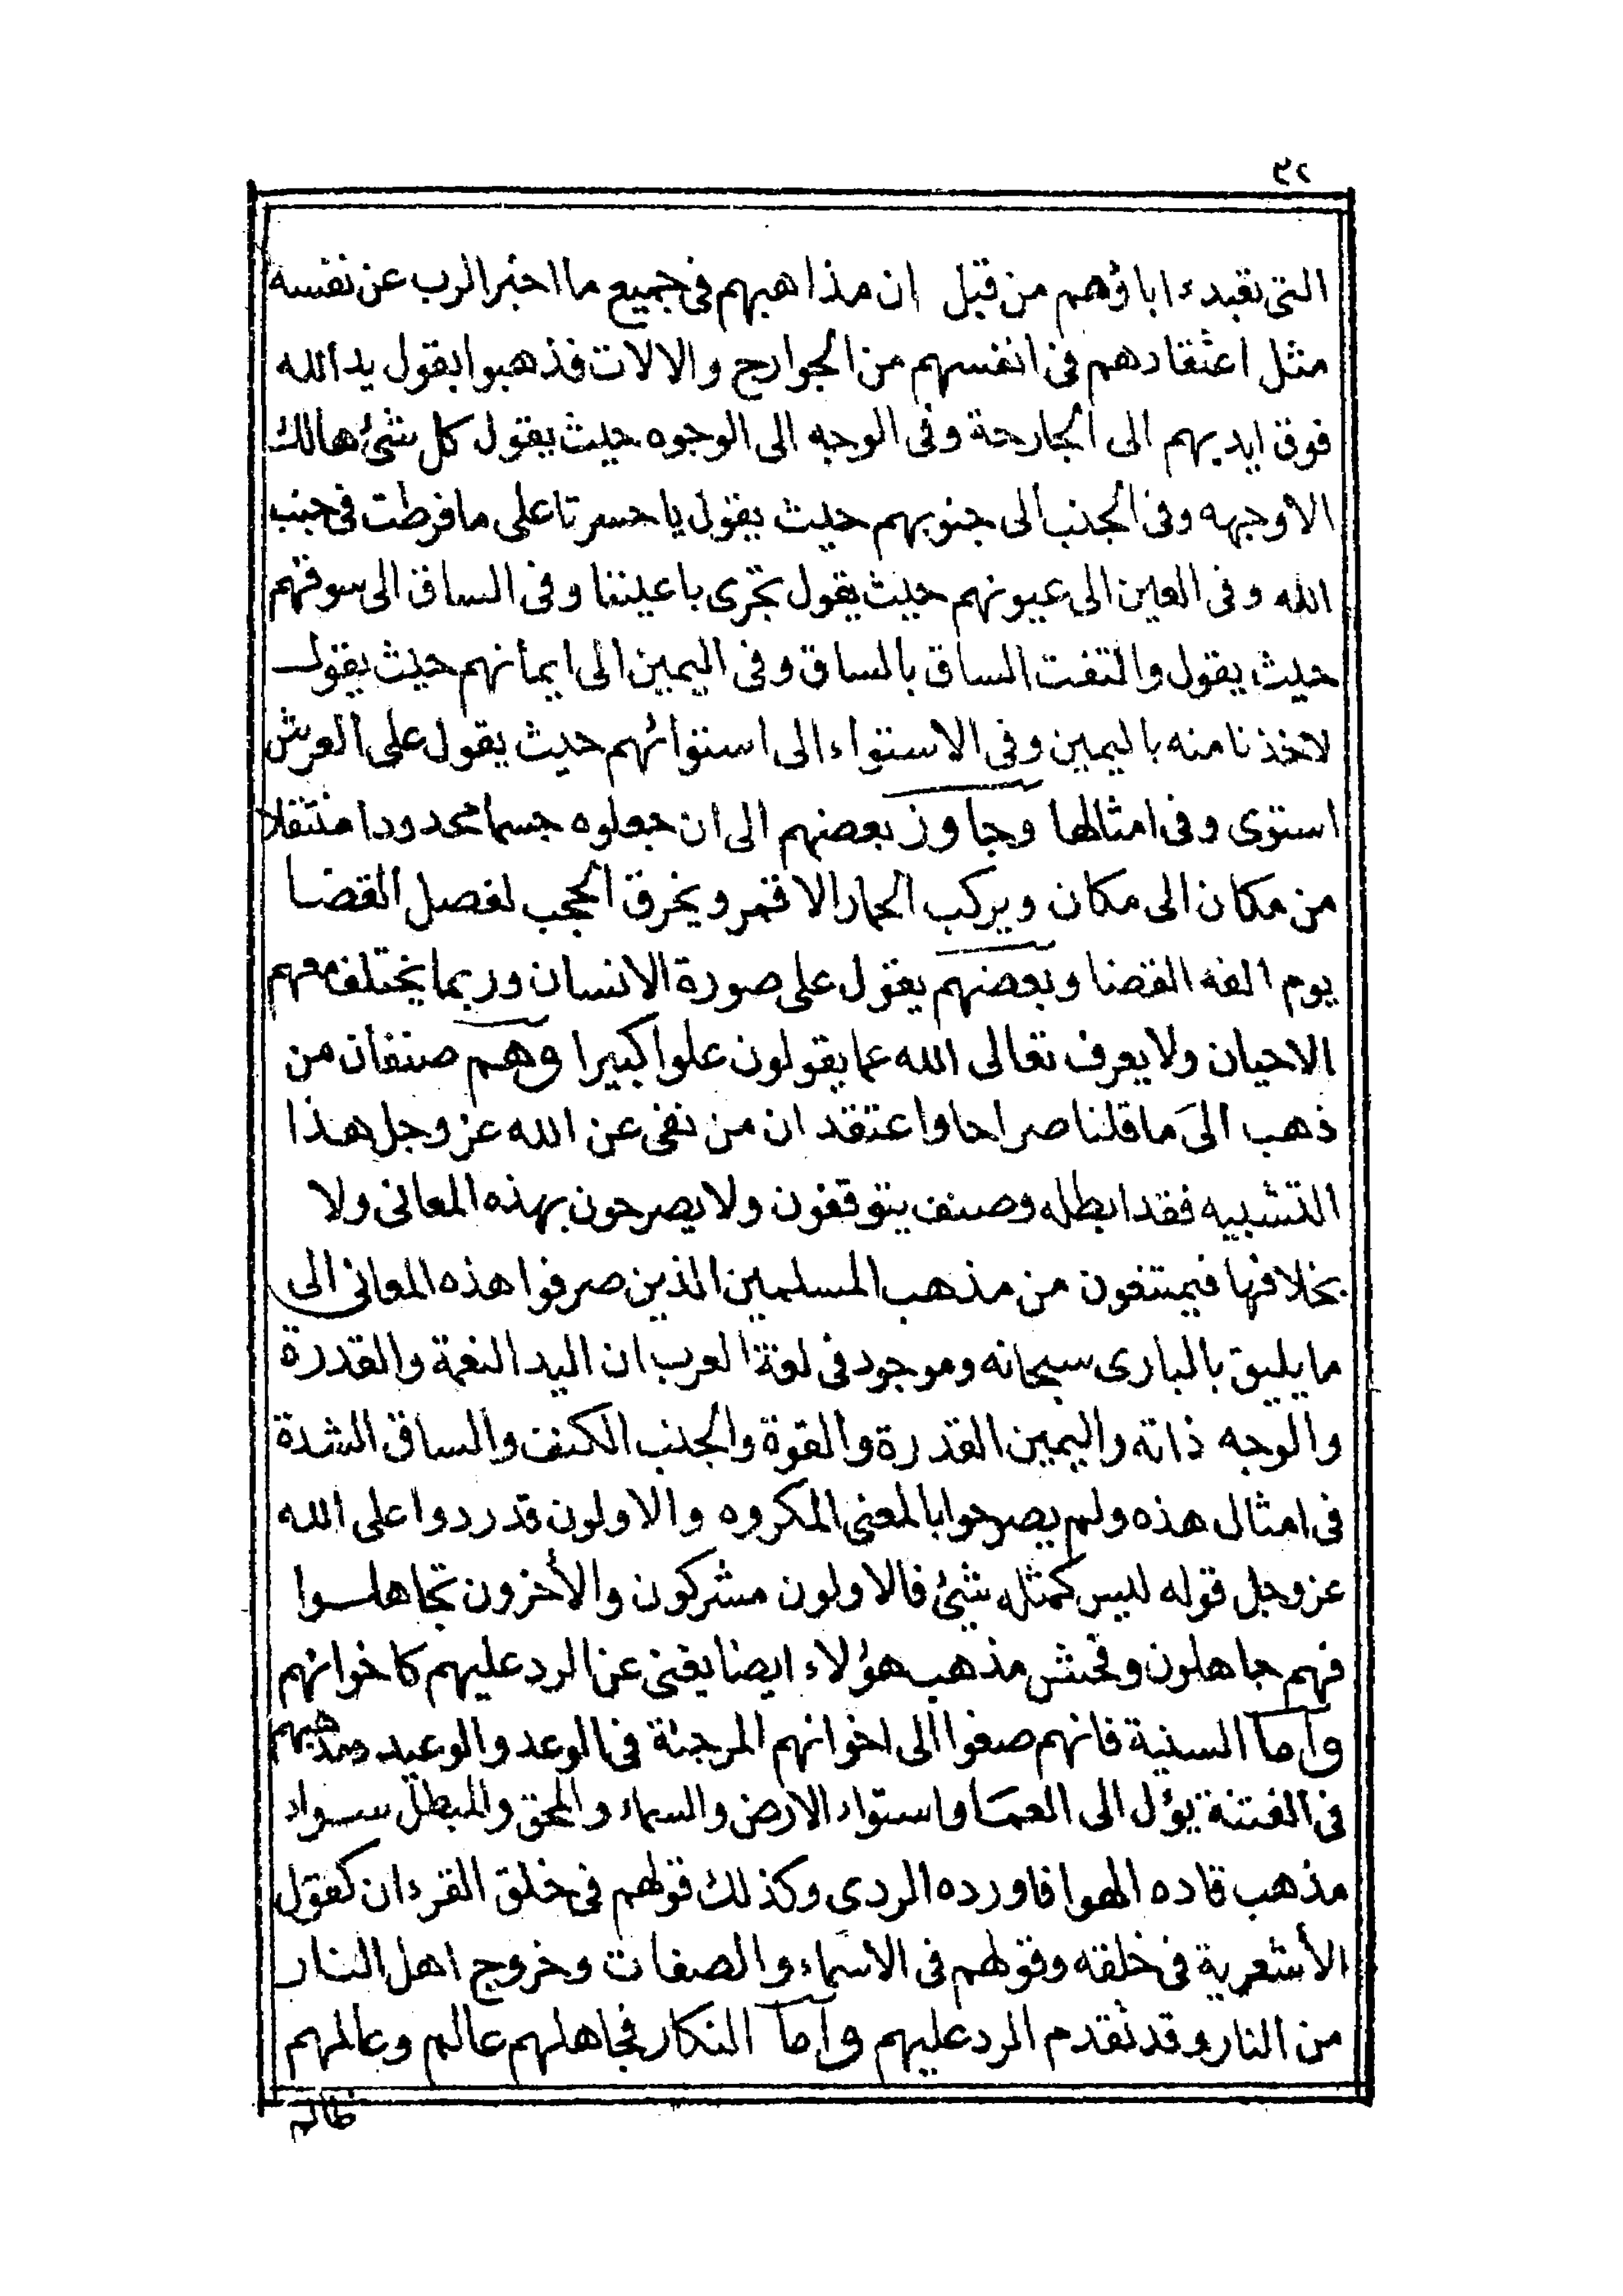 ٣٢
التى تقبدء اباؤهم من قبل ان مذاهبهم فى جميع ما اخبر الرب عن نفسه
مثل اعتقادهم فى انفسهم من الجوارح والالات فذهبوا بقول يد الله
فوق ايديهم الى الجارحة وفى الوجه الى الوجوه حيث يقول كل شئ هالك
الا وجهه وفى الجنب الى جنوبهم حيث يقول يا حسرتا على ما فرطت فى جنب
الله وفى العين الى عيونهم حيث يقول تجرى باعيننا وفى الساق الى سوقهم
حيث يقول والتفت الساق بالساق وفى اليمين الى ايمانهم حيث يقول
لاخذنا منه باليمين وفى الاستواء الى استوائهم حيث يقول على العرش
استوى وفى امثالها وجاوز بعضهم الى ان جعلوه جسما محدودا منتقلا
من مكان الى مكان ويركب الحمار الاقمر ويخرق الحجب لفصل القضا
يوم القضا وبعضهم يقول على صورة الانسان وربما يختلف معهم
الاحيان ولا يعرف تعالى الله عما يقولون علوا كبيرا وهم صنفان من
ذهب الى ما قلنا صراحا واعتقد ان من نفى عن الله عز وجل هذا
التشبيه فقد ابطله وصنف يتوقفون ولا يصرحون بهذه المعانى ولا
بخلافها فيمتنعون من مذهب المسلمين الذين صرفوا هذه المعانى الى
ما يليق بالبارى سبحانه وموجود فى لغة العرب ان اليد النعمة والقدرة
والوجه ذاته واليمين القدرة والقوة والجنب الكنف والساق الشدة
فى امثال هذه ولم يصرحوا بالمعنى المكروه والاولون قد ردوا على الله
عز وجل قوله ليس كمثله شئ فالاولون مشركون والأخرون تجاهلوا
فهم جاهلون وفحش مذهب هؤلاء ايضا يغنى عن الرد عليهم كاخوانهم
وأما السنية فانهم صغوا الى اخوانهم المرجئة فى الوعد والوعيد ومذهبهم
فى الفتنة يؤل الى العما واستواء الارض والسماء والمحق والمبطل سواء
مذهب قاده الهوا فاورده الردى وكذلك قولهم فى خلق القرءان كقول
الأشعرية فى خلقه وقولهم فى الاسماء والصفات وخروج اهل النار
من النار وقد تقدم الرد عليهم وأما النكار فجاهلهم عالم وعالمهم
ظالم